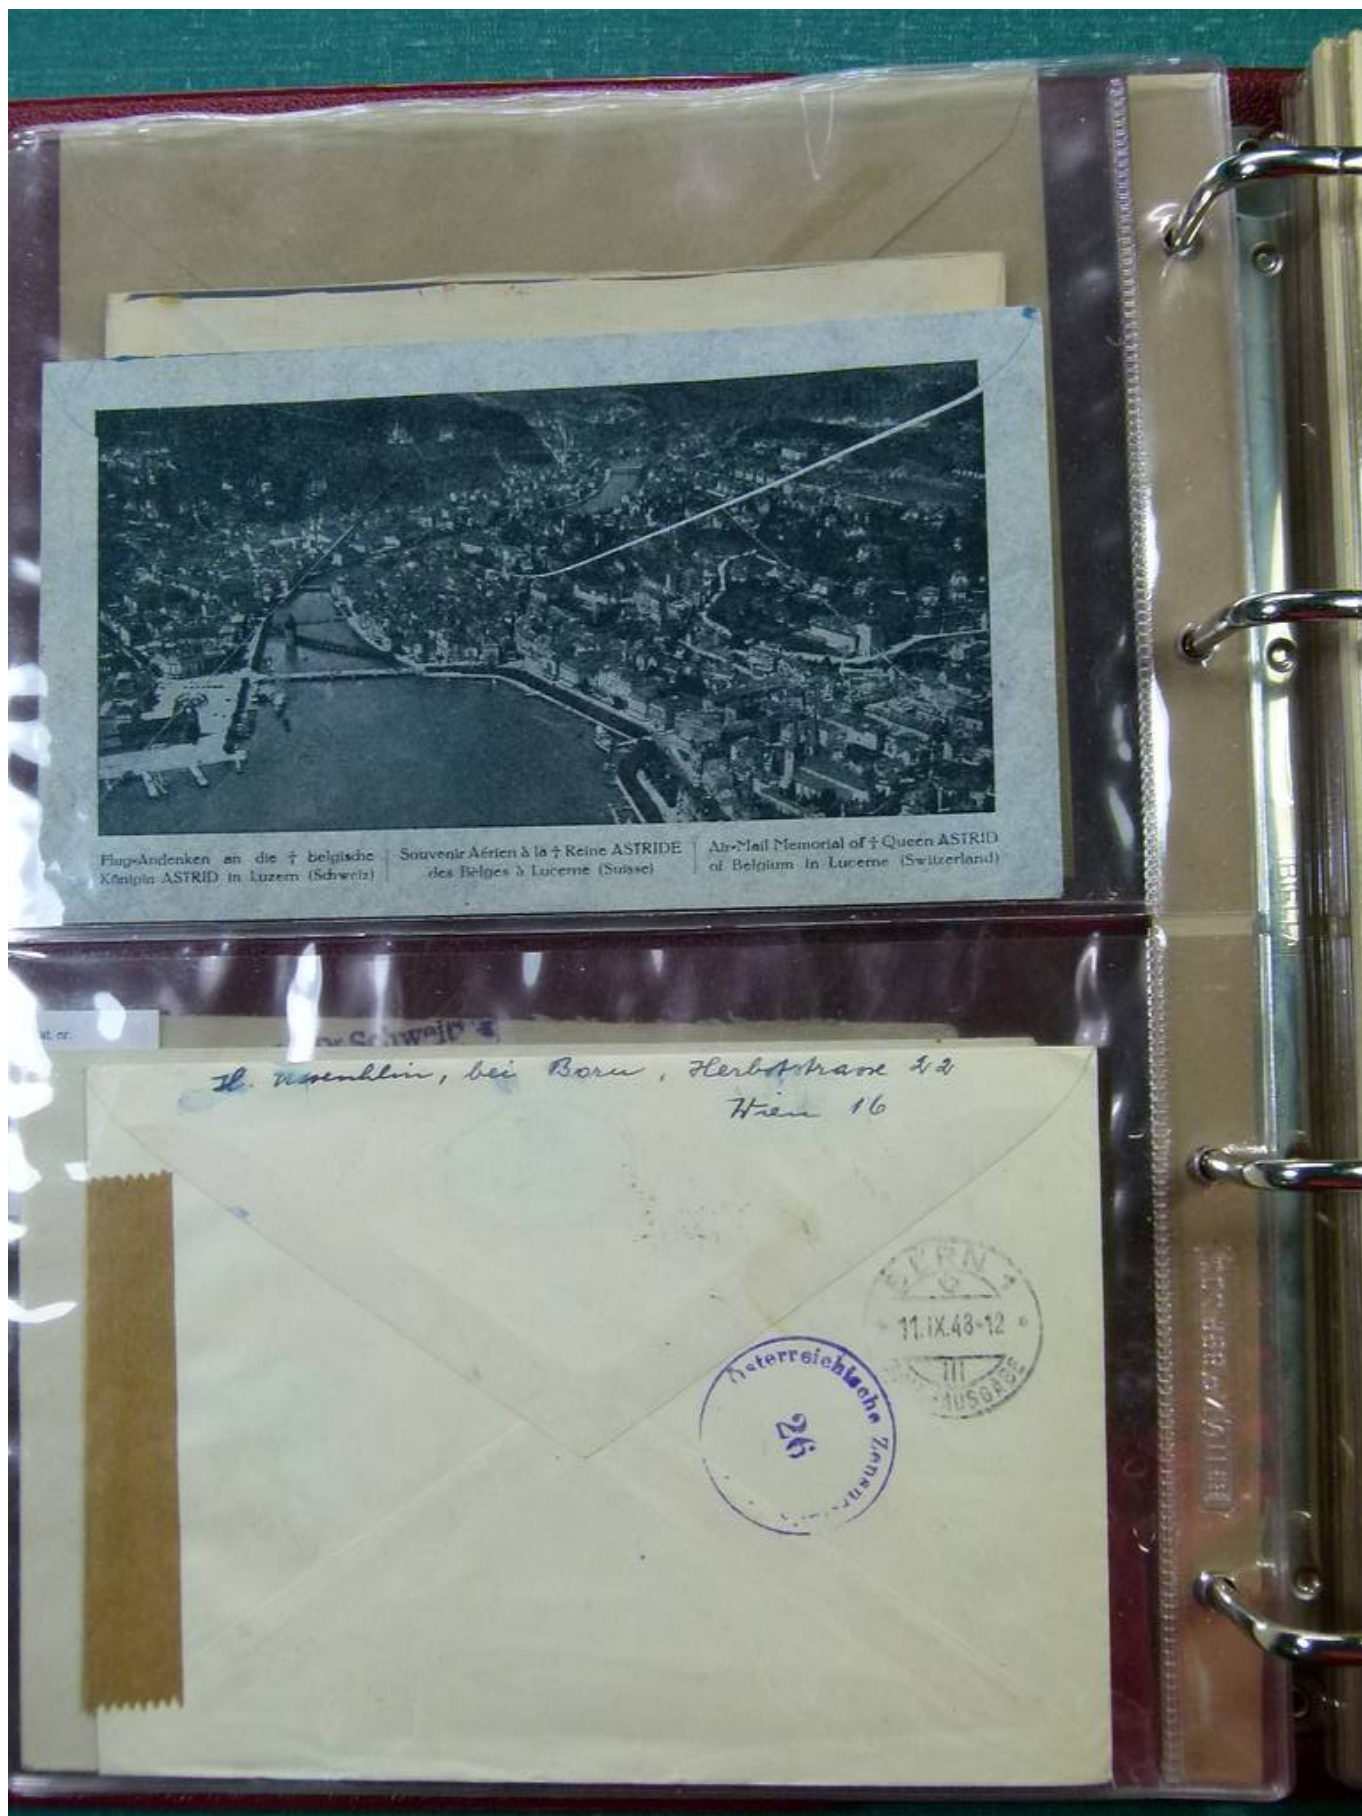 Flug-Andenken an die † belgische
Königin ASTRID in Luzern (Schweiz)
Souvenir Aérien à la † Reine ASTRIDE
des Belges à Lucerne (Suisse)
Air-Mail Memorial of † Queen ASTRID
of Belgium in Lucerne (Switzerland)
nr.
Schweiz
H. bei Born, Herbststrasse 22
Wien 16
BERN 1
11.IX.48-12
III
Österreichische
26